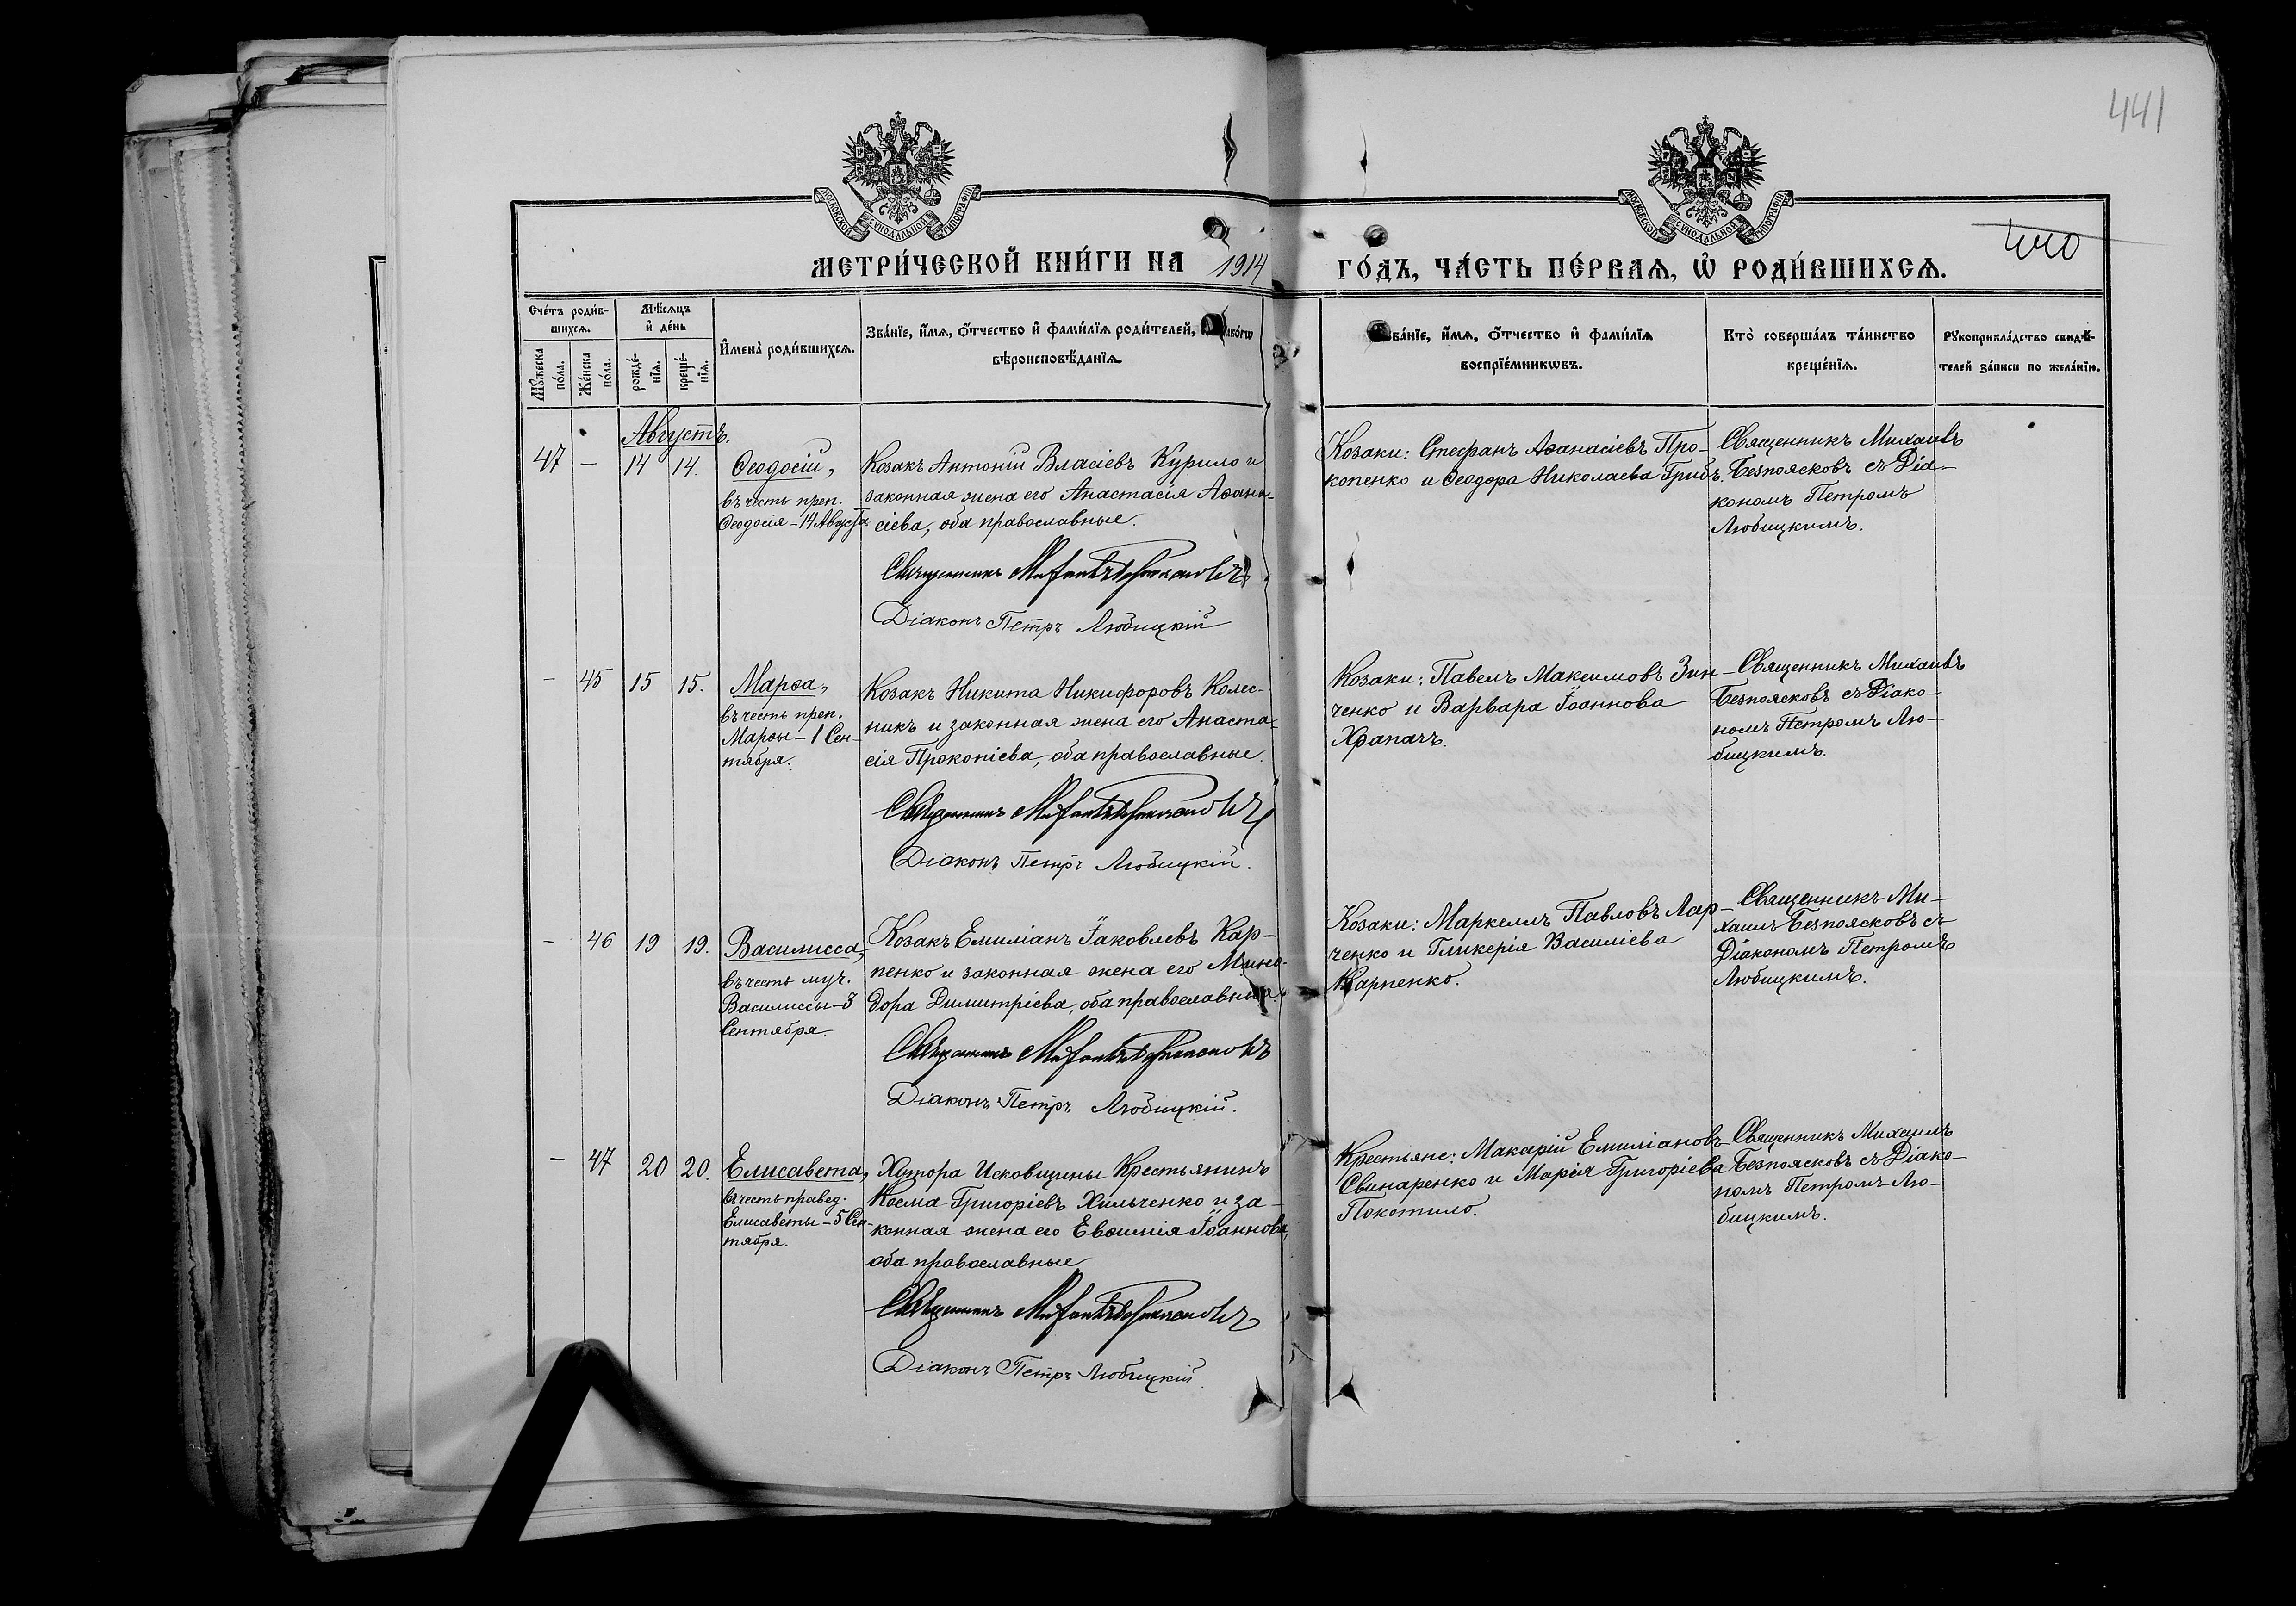 441
МОСКОВСКОЙ СѴНОДАЛЬНОЙ ТИПОГРАФІИ
МОСКОВСКОЙ СѴНОДАЛЬНОЙ ТИПОГРАФІИ
440
МЕТРИ́ЧЕСКОЙ КНИ́ГИ НА 1914 ГО́ДЪ, ЧА́СТЬ ПЕ́РВАѦ, Ѡ҆ РОДИ́ВШИХСѦ.
Сче́тъ роди́в-
шихсѧ.
Мꙋ́жеска
по́ла.
Же́нска
по́ла.
Мѣ́сѧцъ
и҆ де́нь
рожде́-
нїѧ.
креще́-
нїѧ.
И҆мена̀ роди́вшихсѧ.
Зва́нїе, и҆́мѧ, о҆́тчество и҆ фами́лїѧ роди́телей,
вѣроисповѣ́данїѧ.
и҆́мѧ, о҆́тчество и҆ фами́лїѧ
воспрїе́мникѡвъ.
Кто̀ соверша́лъ та́инство
креще́нїѧ.
Рꙋкоприкла́дство свидѣ́-
телей за́писи по жела́нїю.
Августъ.
47 — 14 14.
Ѳеодосій,
въ честь преп.
Ѳеодосія – 14 Августа
Козакъ Антоній Власіевъ Курило и
законная жена его Анастасія Аѳана-
сіева, оба православные.
Священникъ Михаилъ Безпоясковъ
Діаконъ Петръ Любицкій
Козаки: Стефанъ Аѳанасіевъ Про-
копенко и Ѳеодора Николаева Грибъ.
Священникъ Михаилъ
Безпоясковъ съ Діа-
кономъ Петромъ
Любицкимъ.
— 45 15 15.
Марѳа,
въ честь преп.
Марѳы – 1 Сен-
тября.
Козакъ Никита Никифоровъ Колес-
никъ и законная жена его Анаста-
сія Прокопіева, оба православные.
Священникъ Михаилъ Безпоясковъ
Діаконъ Петръ Любицкій.
Козаки: Павелъ Максимовъ Зин-
ченко и Варвара Іоаннова
Храпачъ.
Священникъ Михаилъ
Безпоясковъ съ Діако-
номъ Петромъ Лю-
бицкимъ.
— 46 19 19.
Василисса,
въ честь муч.
Василиссы – 3
Сентября.
Козакъ Емиліанъ Іаковлевъ Кар-
пенко и законная жена его Мино-
дора Димитріева, оба православные.
Священникъ Михаилъ Безпоясковъ
Діаконъ Петръ Любицкій.
Козаки: Маркеллъ Павловъ Лар-
ченко и Гликерія Василіева
Карпенко.
Священникъ Ми-
хаилъ Безпоясковъ съ
Діакономъ Петромъ
Любицкимъ.
— 47 20 20.
Елисавета,
въ честь правед.
Елисаветы – 5 Сен-
тября.
Хутора Исковщины Крестьянинъ
Косма Григоріевъ Хильченко и за-
конная жена его Евѳимія Іоаннова,
оба православные
Священникъ Михаилъ Безпоясковъ
Діаконъ Петръ Любицкій
Крестьяне: Макарій Емиліановъ
Свинаренко и Марія Григоріева
Покотило.
Священникъ Михаилъ
Безпоясковъ съ Діако-
номъ Петромъ Лю-
бицкимъ.